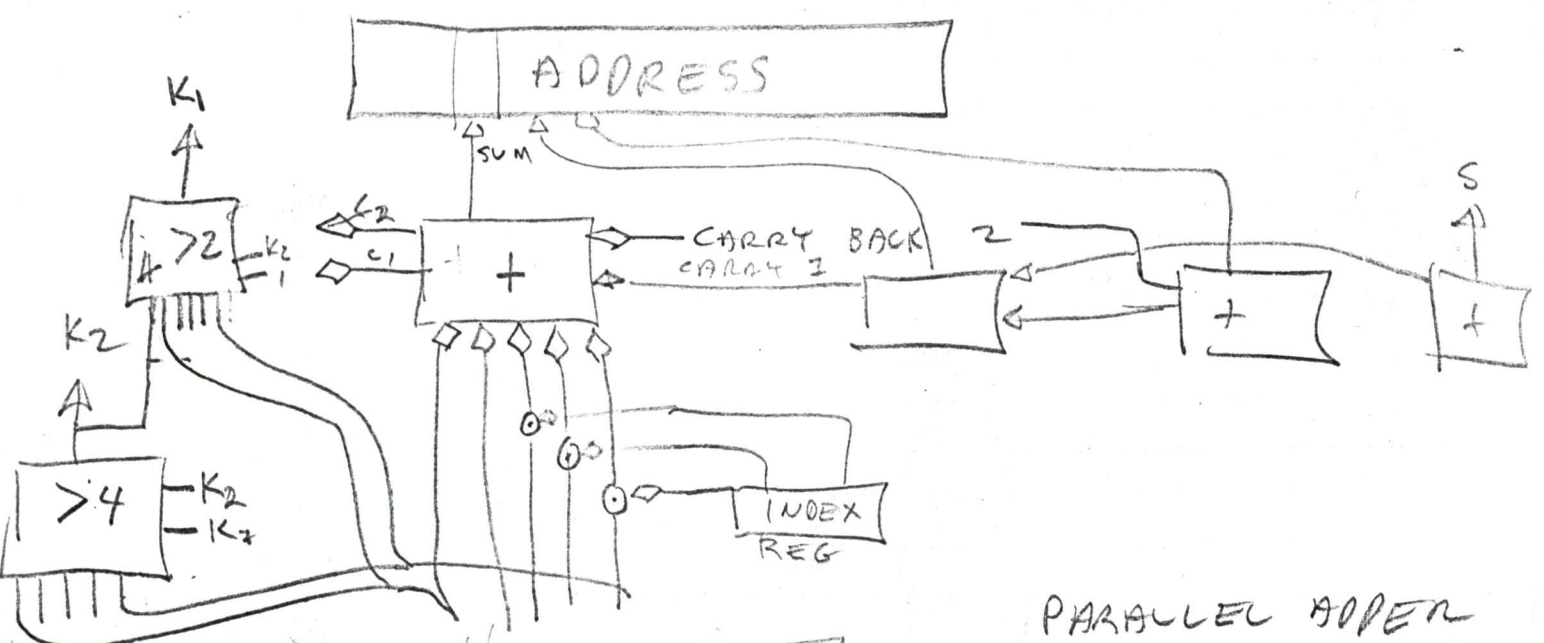 ADDRESS
K1
SUM
S
C2
>2
K2
1
4
C1
+
CARRY BACK
2
CARRY 1
+
+
K2
>4
K2
INDEX
REG
PARALLEL ADDER